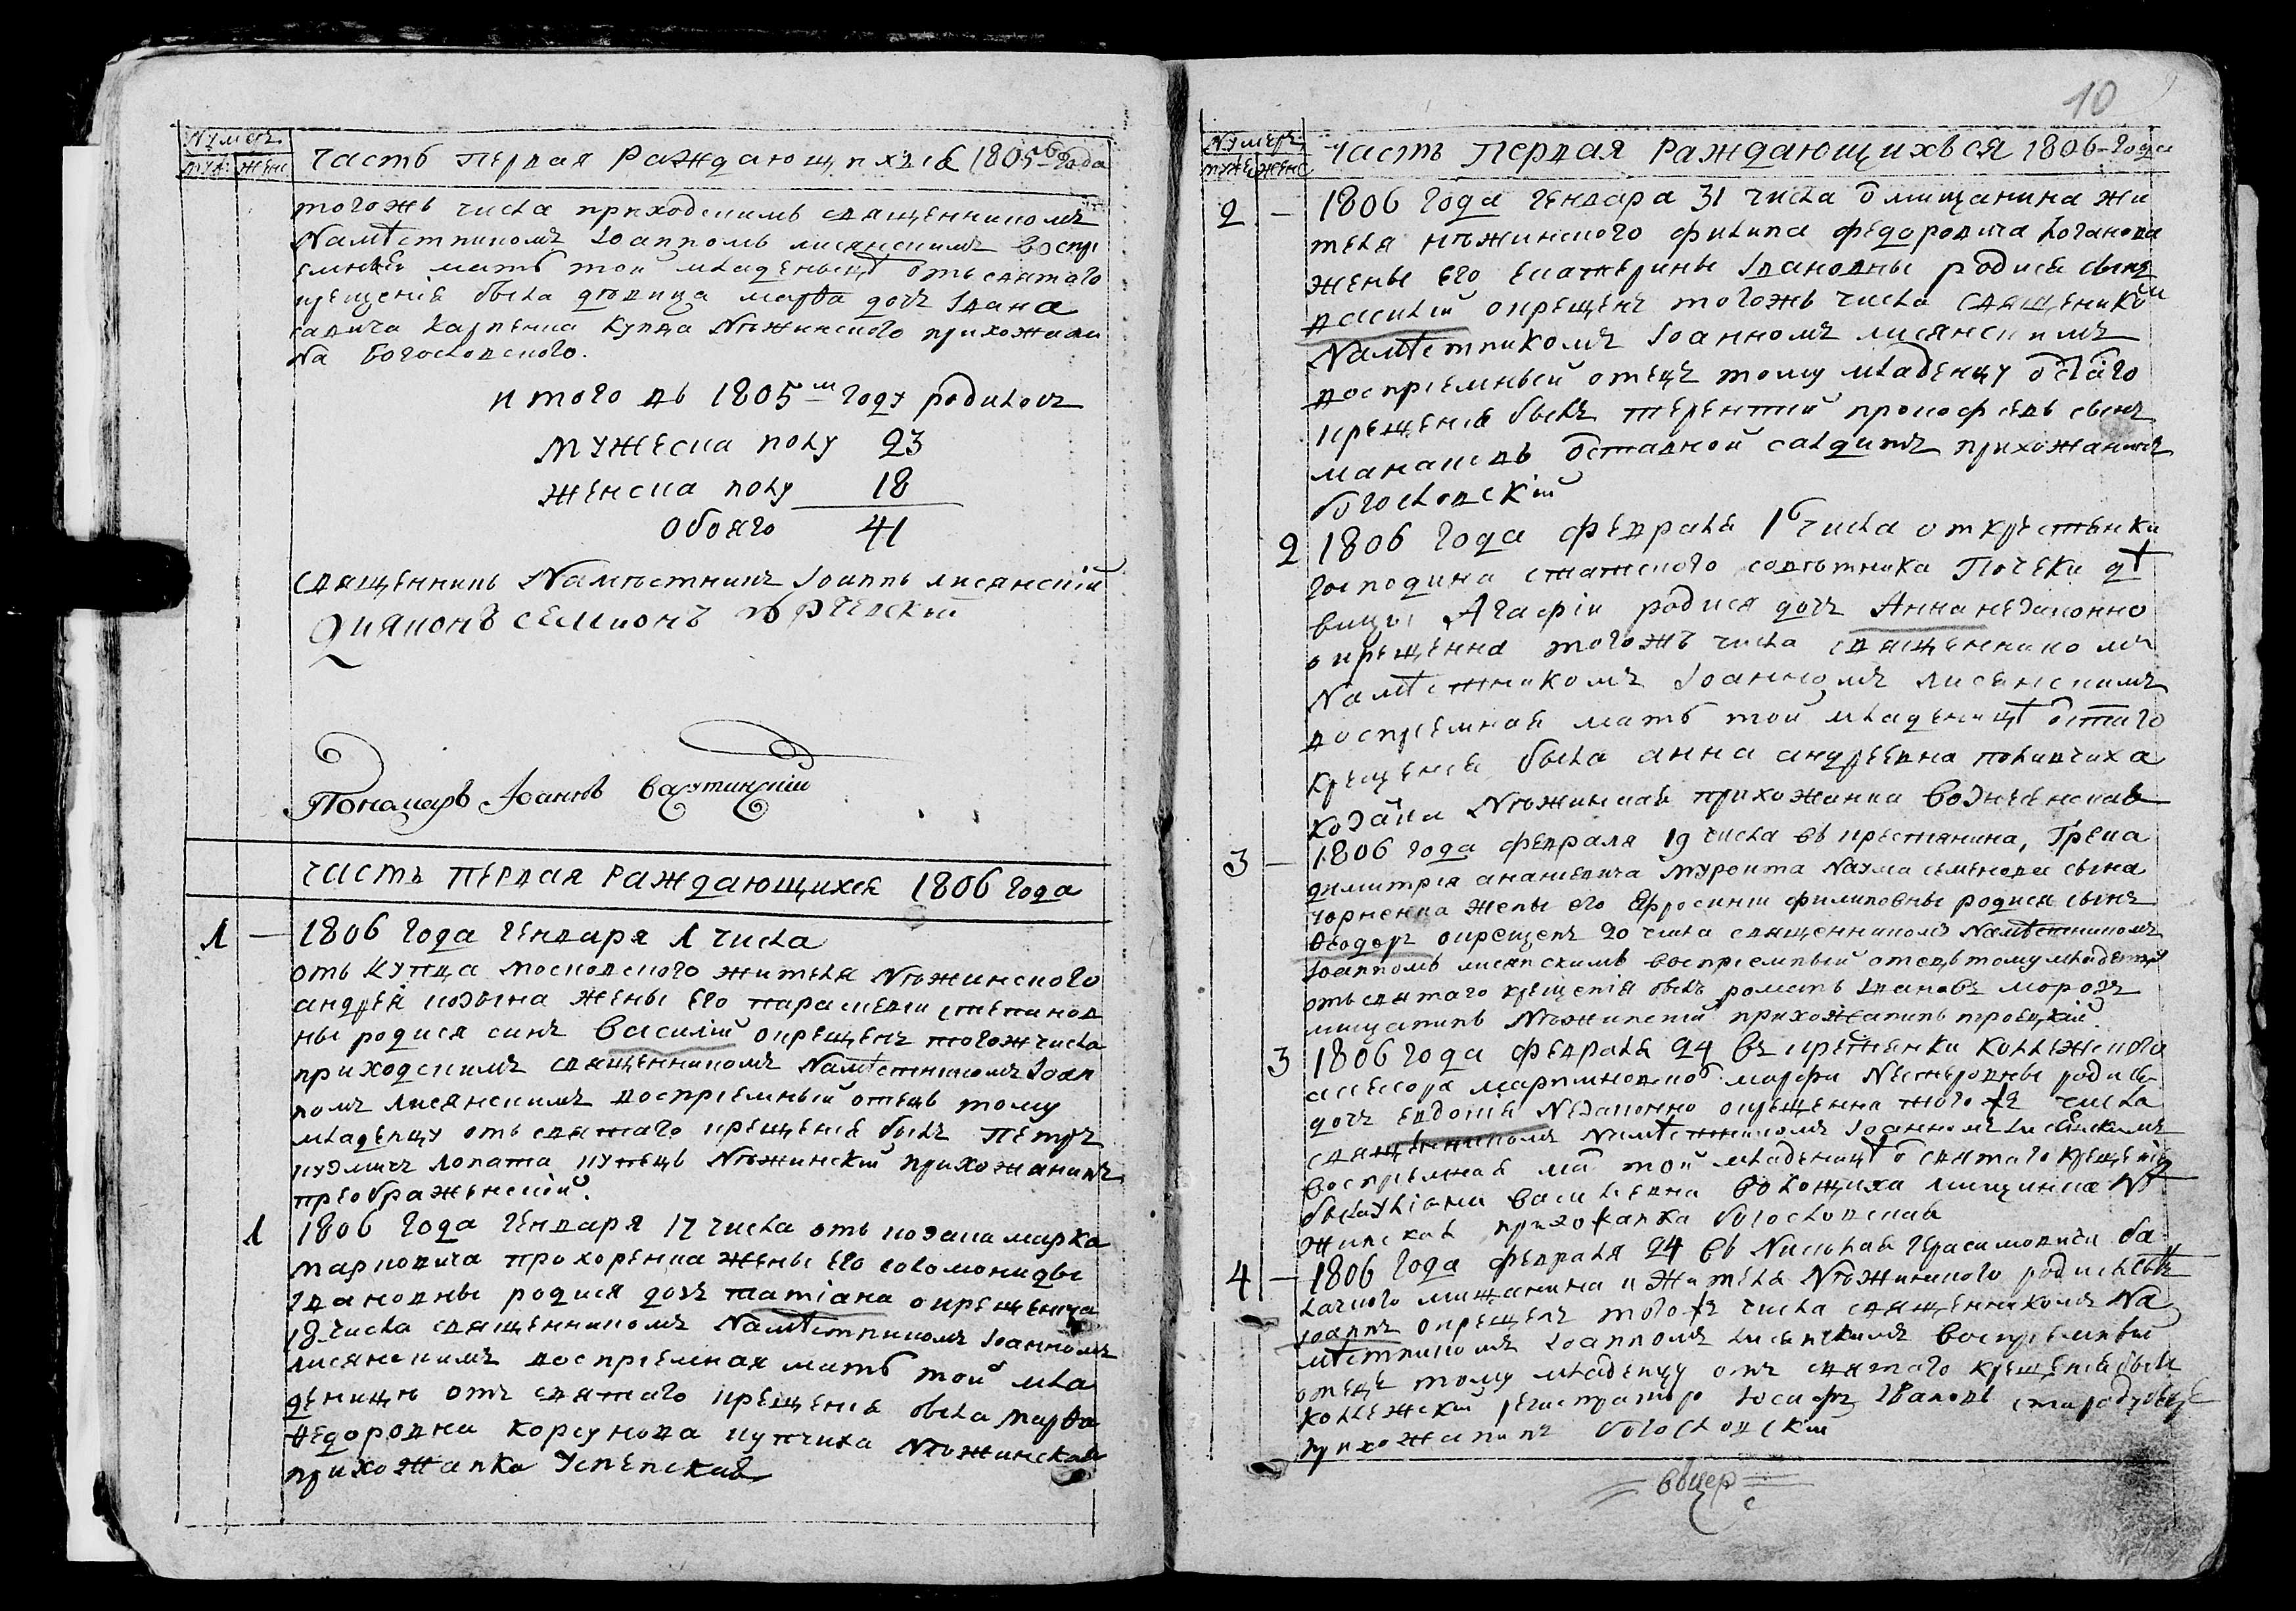 Нумеръ
муж: женс
Часть первая раждающихся 1805 года
тогожъ числа приходскимъ священникомъ
Намѣстникомъ Iоанномъ лисянскимъ воспрі
емная мать той младеницѣ отъ святаго
крещенія была дѣвица марѳа дочь Iвана
савича карпенка купца Нѣжинского прихожани
на богословского.
итого въ 1805м году родилось
мужеска полу 23
женска полу 18
обояго 41
священникъ Намѣстникъ Iоаннъ лисянскій
Дияконъ семионъ
Пономаръ Iоаннъ
Часть первая раждающихся 1806 года
1 — 1806 года генваря 1 числа
отъ купца московского жителя Нѣжинского
андрея козъина жены его параскевіи степанов
ны родися синъ Василій окрещенъ тогожъ числа
приходскимъ священникомъ Намѣстникомъ Iоан
номъ лисянскимъ воспріемный отецъ тому
младенцу отъ святаго крещенія былъ Петръ
кузмичъ лопата купецъ Нѣжинскій прихожанинъ
преображенскій.
1 1806 года генваря 17 числа отъ козака марка
марковича прохоренка жены его соломониды
Iвановны родися дочь татіана окрещенна
18 числа священникомъ Намѣстникомъ Iоанномъ
лисянскимъ воспріемная мать той мла
деницѣ отъ святаго крещенія была марѳа
ѳедоровна корсунова купчиха Нѣжинская
прихожанка Успенская
10
Нумеръ
муже женс
Часть Первая Раждающихъся 1806 года
2 — 1806 года генвара 31 числа ѿ мищанина жи
теля нѣжинского филипа федоровича
жены его екатерины Iвановны родися сынъ
василій окрещенъ тогожъ числа священнико
Намѣстникомъ Iоанномъ лисянскимъ
воспріемный отецъ тому младенцу ѿ стаго
крещенія былъ терентий прокофіевъ сынъ
ѿставной салдатъ прихожанинъ
богословскій
2 1806 года февраля 1 числа от крестянки
господина статского совѣтника Почеки дѣ
вицы Агафіи родися дочь Анна незаконно
окрещенна тогожъ числа священникомъ
Намѣстникомъ Iоанномъ лисянскимъ
воспріемная мать той младеницѣ ѿ стаго
крещенія была анна андреевна
козачка Нѣжинская прихожанка вознесенская
3 — 1806 года февраля 19 числа въ крестянина, Грека
димитрія ананиевича Наума семенова сына
чорненка жены его Ефросинии филиповны родися сынъ
Ѳеодоръ окрещенъ 20 числа священникомъ Намѣстникомъ
Iоанномъ лисянскимъ воспріемный отецъ тому младенцу
отъ святаго крещенія былъ романъ Iвановъ морозъ
мищанинъ Нѣжинский прихожанинъ троецкій.
3 1806 года февраля 24 въ крестянки колежского
асесора марфи Нестеровны родись
дочь Евдокія Незаконно окрещенна тогожъ числа
священникомъ Намѣстникомъ Iоанномъ Лисянскимъ
воспріемная ма той младеницѣ ѿ святаго крещенія
была Улiана Василиевна мищанка Нѣ
жинская прихожанка богословская
4 — 1806 года февраля 24 въ Николая герасимовича
мищанина и жителя Нѣжинского родися сынъ
Iоаннъ окрещенъ тогожъ числа священникомъ На
мѣстникомъ Iоанномъ Лисянскимъ воспріемный
отецъ тому младенцу отъ святаго крещенія былъ
колежский регистраторъ Iосифъ Iвановъ
прихожанинъ богословскій